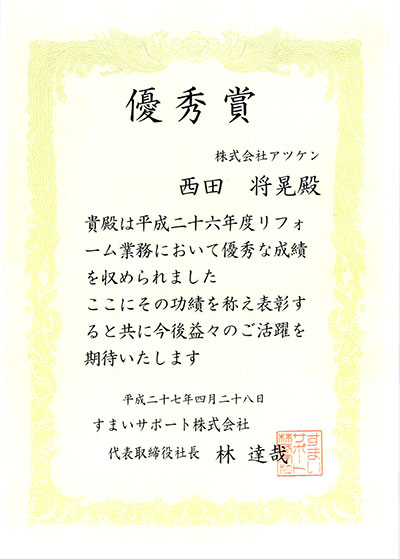 優秀賞
株式会社アツケン
西田 将晃殿
貴殿は平成二十六年度リフォ
ーム業務において優秀な成績
を収められました
ここにその功績を称え表彰す
ると共に今後益々のご活躍を
期待いたします
平成二十七年四月二十八日
すまいサポート株式会社
代表取締役社長 林 達哉
すまい
サポート
株式会社